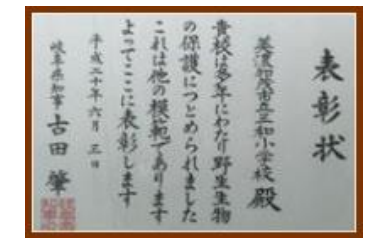 表彰状
美濃加茂市立三和小学校 殿
貴校は多年にわたり野生生物
の保護につとめられました
これは他の模範であります
よってここに表彰します
平成二十年六月三日
岐阜県知事 古田 肇